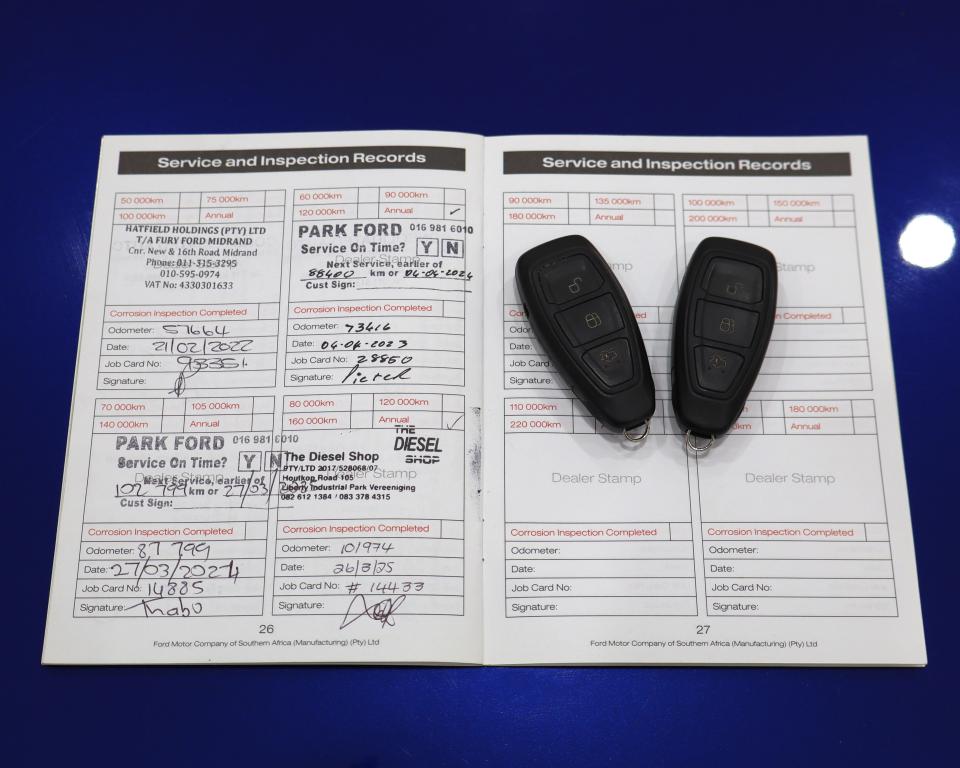 Service and Inspection Records
50 000km 75 000km
100 000km Annual
HATFIELD HOLDINGS (PTY) LTD
T/A FURY FORD MIDRAND
Cnr. New & 16th Road, Midrand
Phone: 011-315-3295
010-595-0974
VAT No: 4330301633
Corrosion Inspection Completed
Odometer: 57664
Date: 21/02/2022
Job Card No:
Signature:
60 000km 90 000km
120 000km Annual ✓
PARK FORD 016 981 6010
Service On Time? Y N
Dealer Stamp
Next Service, earlier of
88400 km or 04-04-2024
Cust Sign:
Corrosion Inspection Completed
Odometer: 73416
Date: 04-04-2023
Job Card No: 28850
Signature: Pieter
70 000km 105 000km
140 000km Annual
PARK FORD 016 981 6010
Service On Time? Y N
Dealer Stamp
Next Service, earlier of
102 799 km or 27/03/
Cust Sign:
Corrosion Inspection Completed
Odometer: 87 799
Date: 27/03/2024
Job Card No: 14885
Signature: Thabo
80 000km 120 000km
160 000km Annual ✓
THE
DIESEL
SHOP
The Diesel Shop
PTY/LTD 2017/528068/07
Houtkop Road 105
Liberty Industrial Park Vereeniging
082 612 1384 / 083 378 4315
Corrosion Inspection Completed
Odometer: 101974
Date: 26/3/25
Job Card No: # 14433
Signature:
26
Ford Motor Company of Southern Africa (Manufacturing) (Pty) Ltd
Service and Inspection Records
90 000km 135 000km
180 000km Annual
Date:
Job Card No:
Signature:
100 000km 150 000km
200 000km Annual
Dealer Stamp
110 000km
220 000km
Dealer Stamp
Corrosion Inspection Completed
Odometer:
Date:
Job Card No:
Signature:
180 000km
Annual
Dealer Stamp
Corrosion Inspection Completed
Odometer:
Date:
Job Card No:
Signature:
27
Ford Motor Company of Southern Africa (Manufacturing) (Pty) Ltd